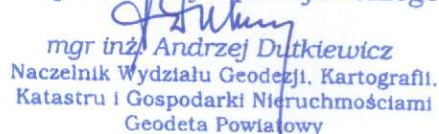 mgr inż. Andrzej Dutkiewicz
Naczelnik Wydziału Geodezji, Kartografii,
Katastru i Gospodarki Nieruchmościami
Geodeta Powiatowy